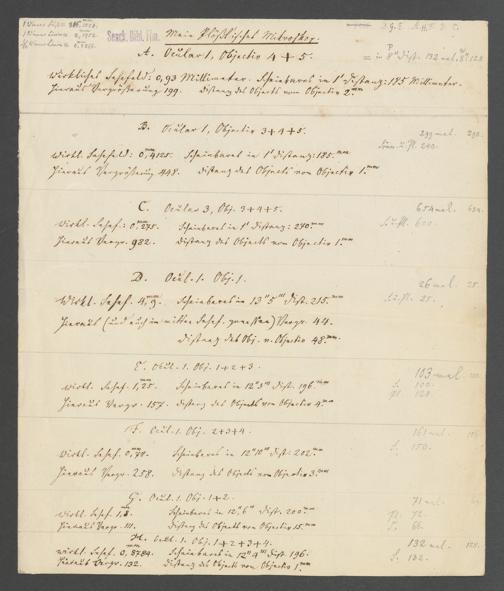 1 Wiener Fuß = 316,
Senck. Bibl. Ffm.
Mein Plößlisches Mikroskop.
A. Ocular 1, Objectiv 4 + 5.
Wirkliches Sehfeld: 0,93 Millimeter. Scheinbares in 1' Distanz: 185 Millimeter.
Hieraus Vergrößerung 199. Distanz des Objects vom Objectiv 2.mm
B. Ocular 1, Objectiv 3+4+5.
Wirkl. Sehfeld: 0,4125. Scheinbares in 1' Distanz: 185.mm
Hieraus Vergrößerung 448. Distanz des Objects vom Objectiv 1.mm
C. Ocular 3, Obj. 3+4+5.
Wirkl. Sehf.: 0,275. Scheinbares in 1' Distanz: 270.mm
Hieraus Vergr. 982. Distanz des Objects vom Objectiv 1.mm
D. Ocul. 1. Obj. 1.
Wirkl. Sehf. 4,9. Scheinbares in 13" 5''' Dist. 215.mm
Hieraus (und auch im mittler Sehf. gemessen) Vergr. 44.
Distanz des Obj. v. Objectiv 48.mm
E. Ocul. 1. Obj. 1+2+3.
Wirkl. Sehf. 1,25. Scheinbares in 12" Dist. 196.mm
Hieraus Vergr. 157. Distanz des Objects vom Objectiv 4.mm
F. Ocul. 1. Obj. 2+3+4.
Wirkl. Sehf. 0,78. Scheinbares in 12" Dist. 202.mm
Hieraus Vergr. 258. Distanz des Objects vom Objectiv 3.mm
G. Ocul. 1. Obj. 1+2.
Wirkl. Sehf. 1,8. Scheinbares in 12" 6''' Dist. 200.mm
Hieraus Vergr. 111. Distanz des Objects vom Objectiv 15.mm
H. Ocul. 1. Obj. 1+2+3+4.
Wirkl. Sehf. 0,8784. Scheinbares in 12" Dist. 196.
Hieraus Vergr. 132. Distanz des Objects vom Objectiv 1.mm
293 mal.
654 mal.
26 mal. 25.
103 mal.
S. 100.
Pl. 120.
161 mal.
S. 150.
71 mal.
Pl. 72.
S. 66.
132 mal.
S. 132.